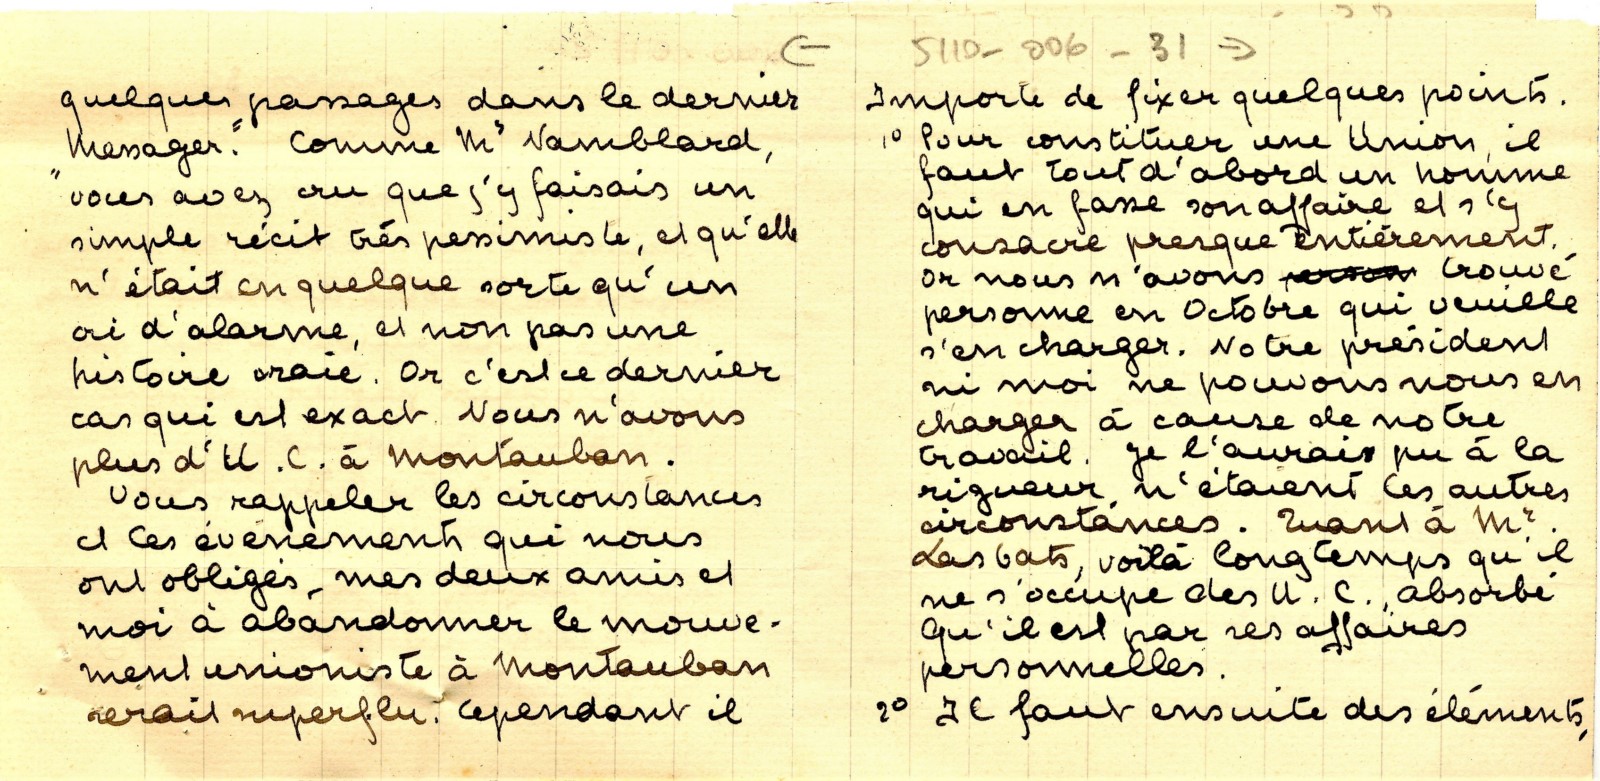 ← 5110-006-31 →
quelques passages dans le dernier
Messager." Comme Mr Vamblard,
"vous avez cru que j'y faisais un
simple récit très pessimiste, et qu'elle
n'était en quelque sorte qu'un
cri d'alarme, et non pas une
histoire vraie. Or c'est ce dernier
cas qui est exact. Nous n'avons
plus d'U.C. à Montauban.
Vous rappeler les circonstances
et les évènements qui nous
ont obligés, mes deux amis et
moi à abandonner le mouve-
ment unioniste à Montauban
serait superflu. Cependant il
Importe de fixer quelques points.
1° Pour constituer une Union, il
faut tout d'abord un homme
qui en fasse son affaire et s'y
consacre presque entièrement.
Or nous n'avons trouvé
personne en Octobre qui veuille
s'en charger. Notre président
ni moi ne pouvons nous en
charger à cause de notre
travail. Je l'aurais pu à la
rigueur, n'étaient les autres
circonstances. Quant à Mr.
Lasbats, voilà longtemps qu'il
ne s'occupe des U.C., absorbé
Qu'il est par ses affaires
personnelles.
2° Il faut ensuite des éléments,